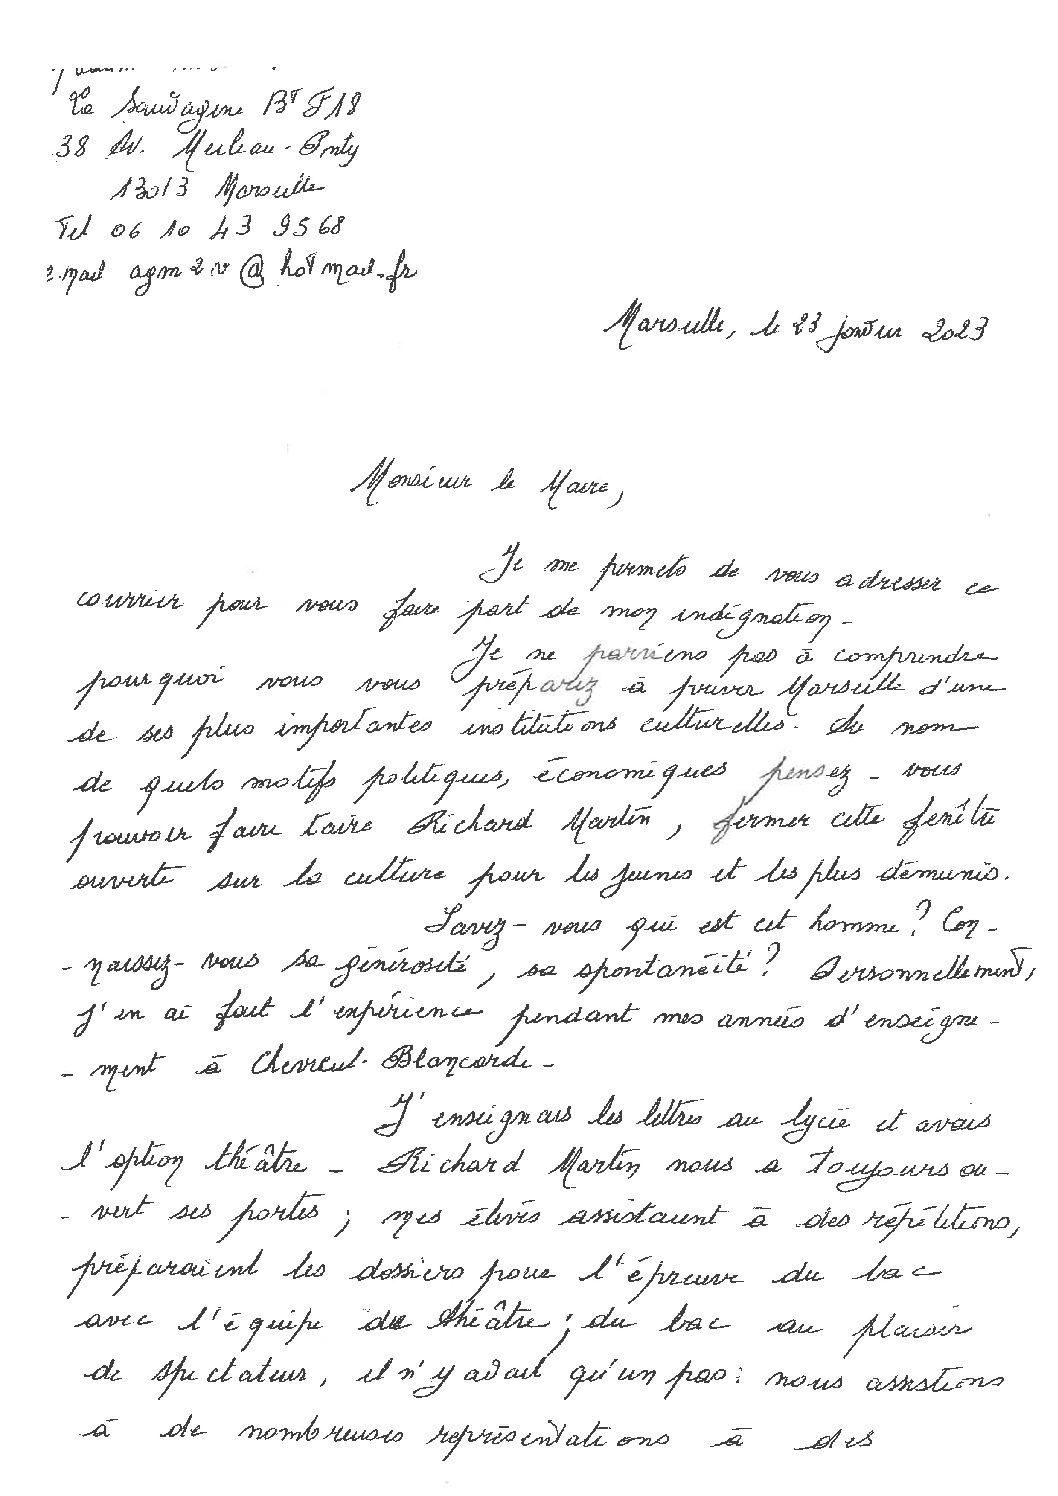 La Sauvagine Bt F18
38 Av. Merleau-Ponty
13013 Marseille
Tel 06 10 43 95 68
e.mail agm2v@hotmail.fr
Marseille, le 23 janvier 2023
Monsieur le Maire,
Je me permets de vous adresser ce
courrier pour vous faire part de mon indignation.
Je ne parviens pas à comprendre
pourquoi vous vous préparez à priver Marseille d'une
de ses plus importantes institutions culturelles. Au nom
de quels motifs politiques, économiques pensez-vous
pouvoir faire taire Richard Martin, fermer cette fenêtre
ouverte sur la culture pour les jeunes et les plus démunis.
Savez-vous qui est cet homme ? Con-
-naissez-vous sa générosité, sa spontanéité ? Personnellement,
j'en ai fait l'expérience pendant mes années d'enseigne-
-ment à Chevreul-Blancarde.
J'enseignais les lettres au lycée et avais
l'option théâtre. Richard Martin nous a toujours ou-
-vert ses portes ; mes élèves assistaient à des répétitions,
préparaient les dossiers pour l'épreuve du bac
avec l'équipe du théâtre ; du bac au plaisir
de spectateur, il n'y avait qu'un pas : nous assistions
à de nombreuses représentations à des